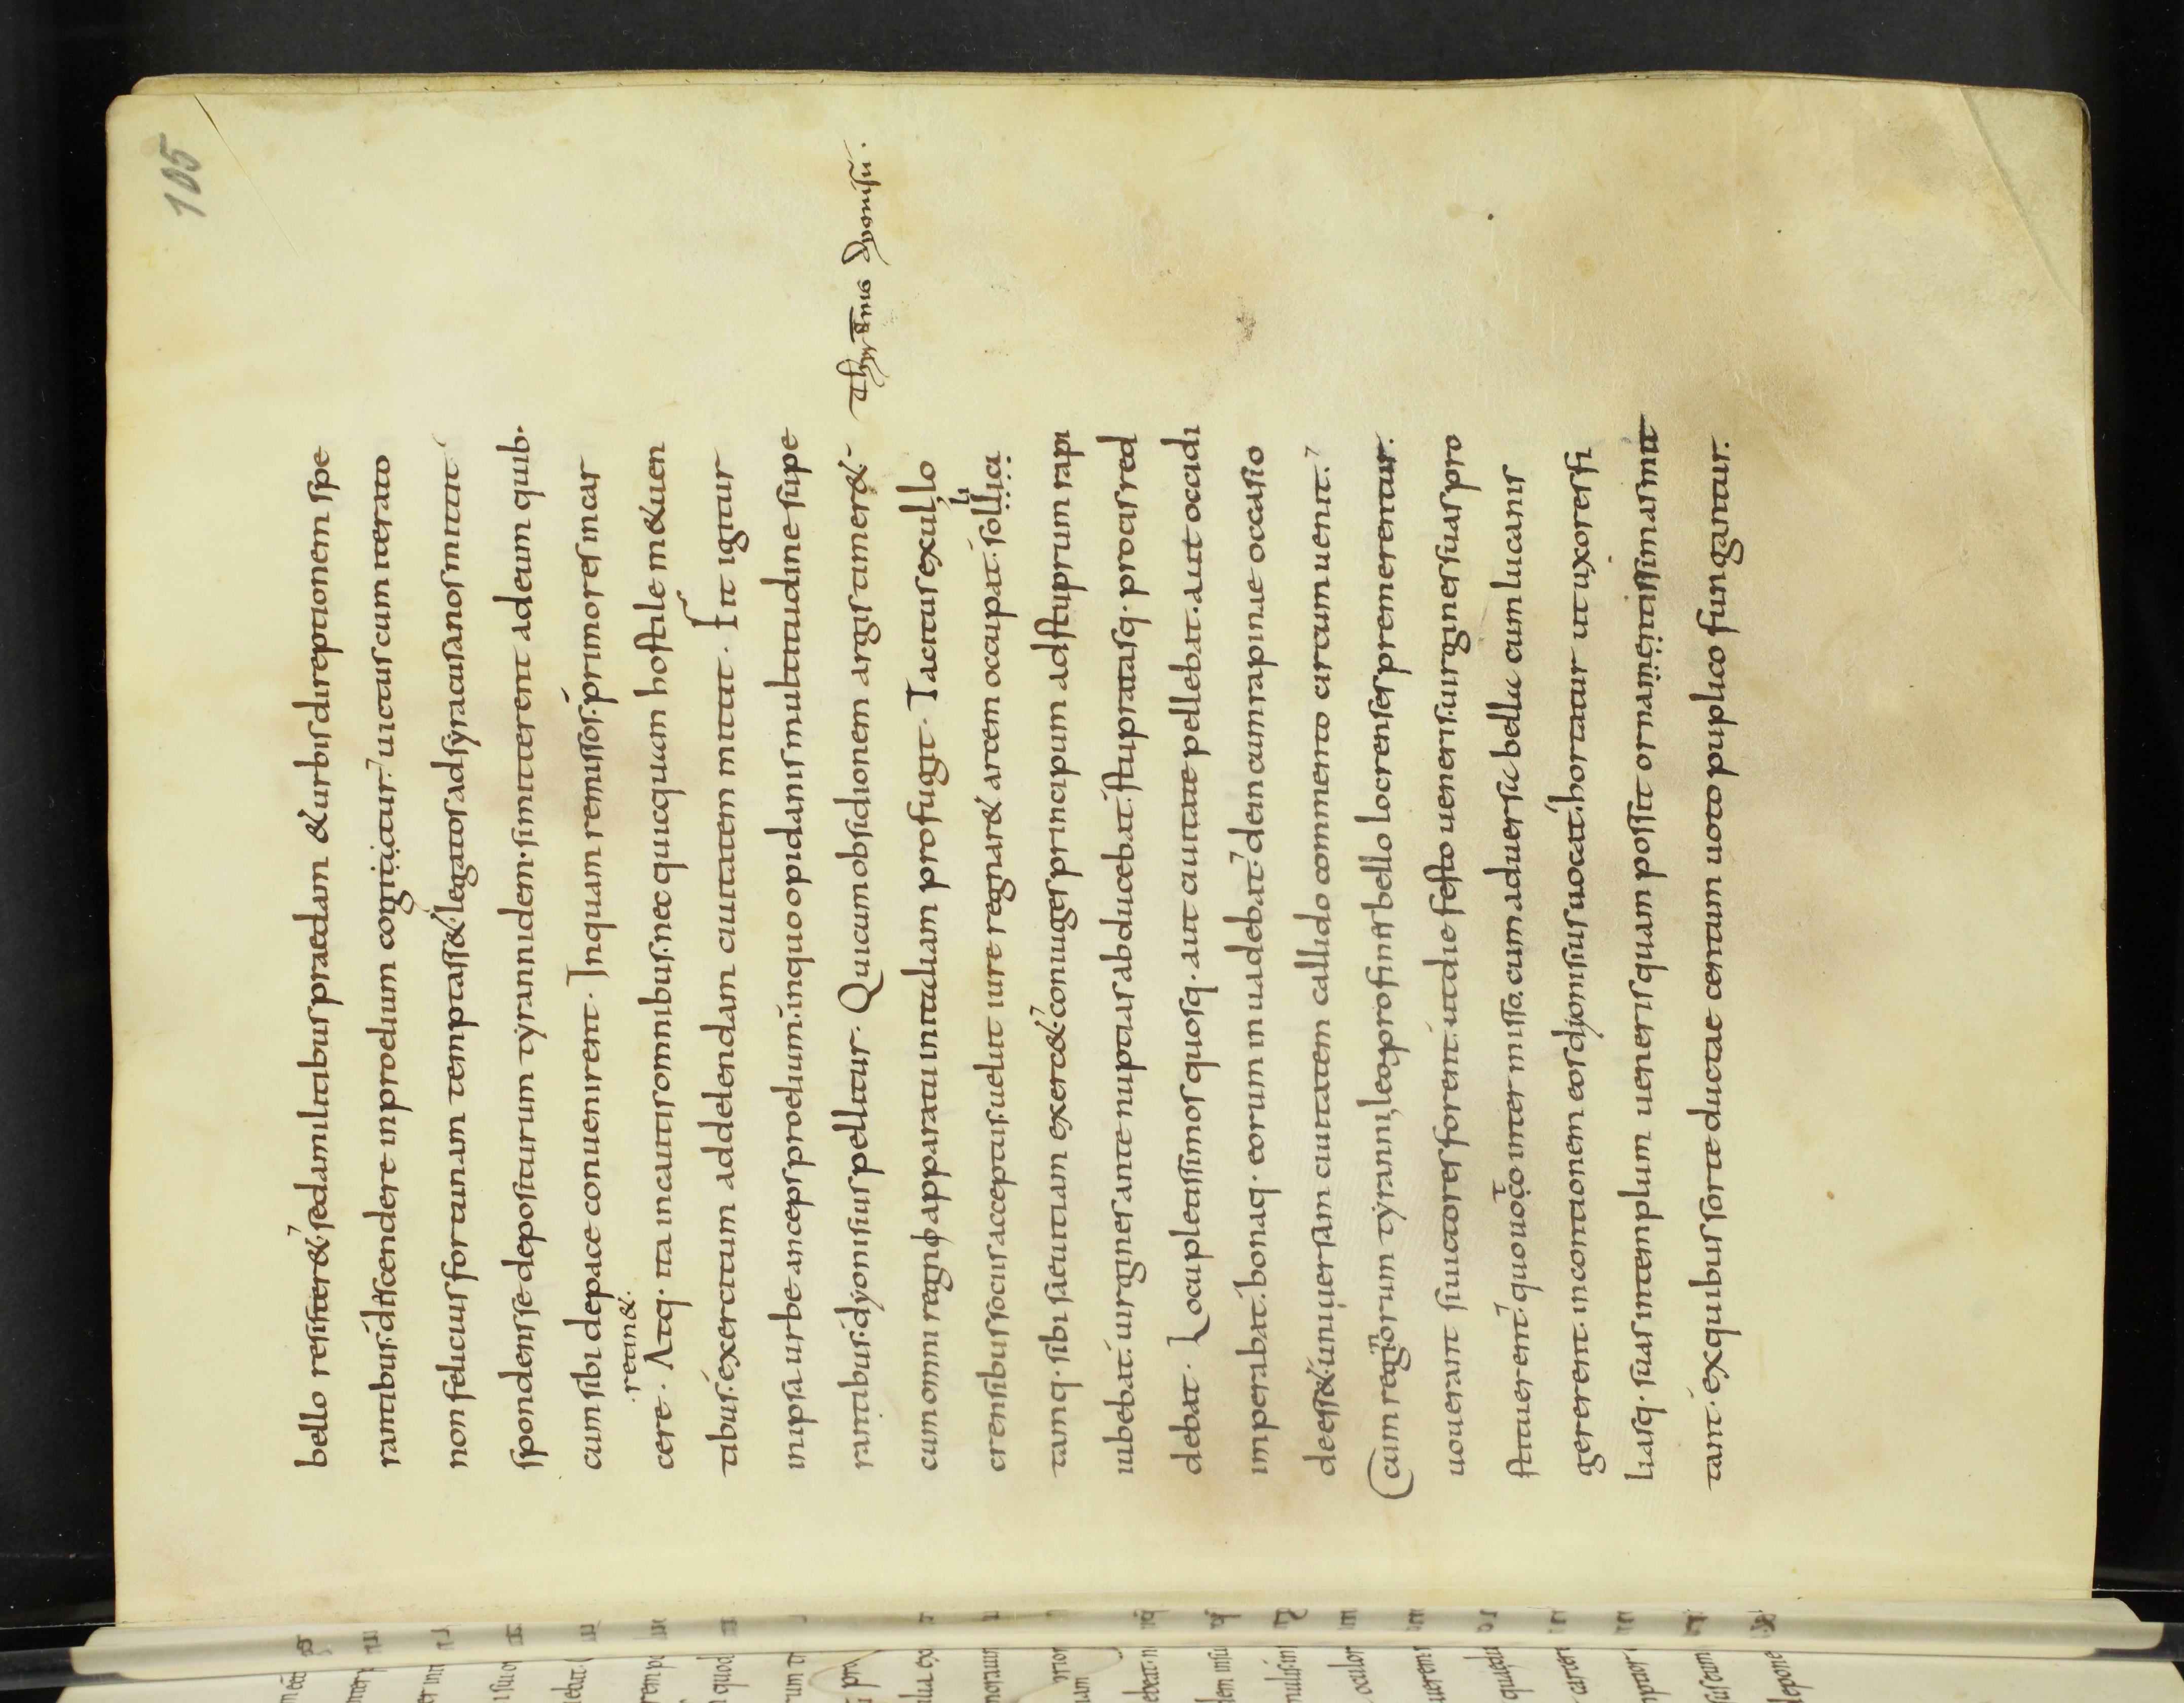 105
bello resister&. sed amilitibus praedam & urbis direptionem spe
rantibus. discendere in proelium cogiticitur. uictus cum iterato
non felicius fortunam temptass&. legatos ad syracusanos mittit
spondens se depositurum tyrannidem. si mitterent ad eum quib.
cum sibi de pace conuenirent. Inquam remissos. primores in car
.retin&.
cere. Atq. ita incautis omnibus. nec quicquam hostile m&uen
tibus. exercitum ad delendam ciuitatem mittit. Fit igitur
in ipsa urbe anceps proelium. in quo opidanis multitudine supe
rantibus. dyonisius pellitur. Qui cum obsidionem arcis timer&. Thyrannus dyonisiū.
cum omni regno apparatu in italiam profugit. Iacitus exul, lo
crensibus sociis acceptus. uelut iure regnar& arcem occupat. sollica
li
tamq. sibi saeuitiam exerc&. coniuges principum ad stuprum rapi
iubebat. uirgines ante nuptias abducebat. stupratasq. procis red
debat. Locupletissimos quosq. aut ciuitate pellebat. aut occidi
imperabat. bonaq. eorum inuadebat. dein cum rapinae occasio
deess&. uniuersam ciuitatem callido commento circumuenit.
Cum reginorum tyranni, leoprofinitis bello locrenses premerentur.
n
uouerant si uictores forent. ut die festo ueneris. uirgines suas pro
stituerent. quo uoco intermisso. cum aduersa bella cum lucanis
t
gererent. in contionem eos dyonisius uocat. hortatur ut uxores fi
liasq. suas in templum ueneris quam possit ornamentissimas mit
tant. ex quibus sorte ductae centum uoto puplico fungantur.